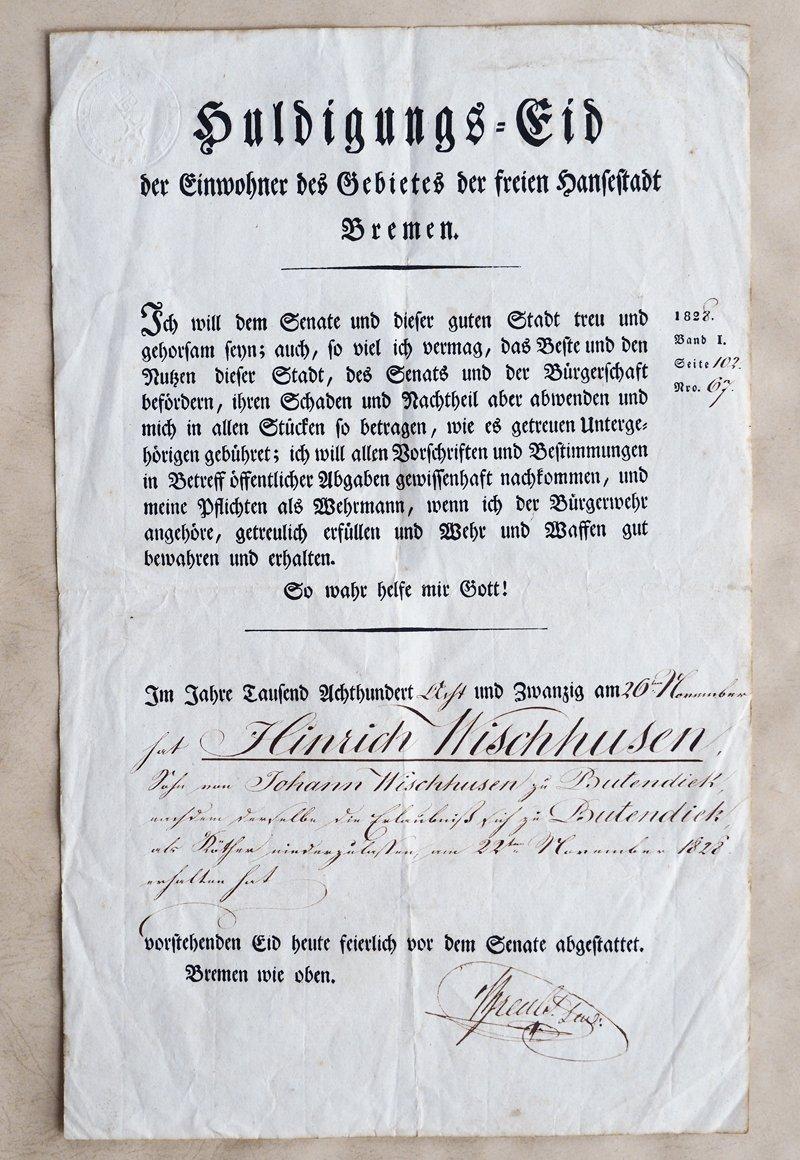 Huldigungs-Eid
der Einwohner des Gebietes der freien Hansestadt
Bremen.
Ich will dem Senate und dieser guten Stadt treu und
gehorsam seyn; auch, so viel ich vermag, das Beste und den
Nutzen dieser Stadt, des Senats und der Bürgerschaft
befördern, ihren Schaden und Nachtheil aber abwenden und
mich in allen Stücken so betragen, wie es getreuen Unterge-
hörigen gebühret; ich will allen Vorschriften und Bestimmungen
in Betreff öffentlicher Abgaben gewissenhaft nachkommen, und
meine Pflichten als Wehrmann, wenn ich der Bürgerwehr
angehöre, getreulich erfüllen und Wehr und Waffen gut
bewahren und erhalten.
So wahr helfe mir Gott!
1828.
Band I.
Seite 102.
Nro. 67.
Im Jahre Tausend Achthundert Acht und Zwanzig am 26ten November
hat Hinrich Wischhusen,
Sohn von Johann Wischhusen zu Butendiek,
nachdem derselbe die Erlaubniß sich zu Butendiek,
als Käther niederzulassen, am 22ten November 1828
erhalten hat
vorstehenden Eid heute feierlich vor dem Senate abgestattet.
Bremen wie oben.